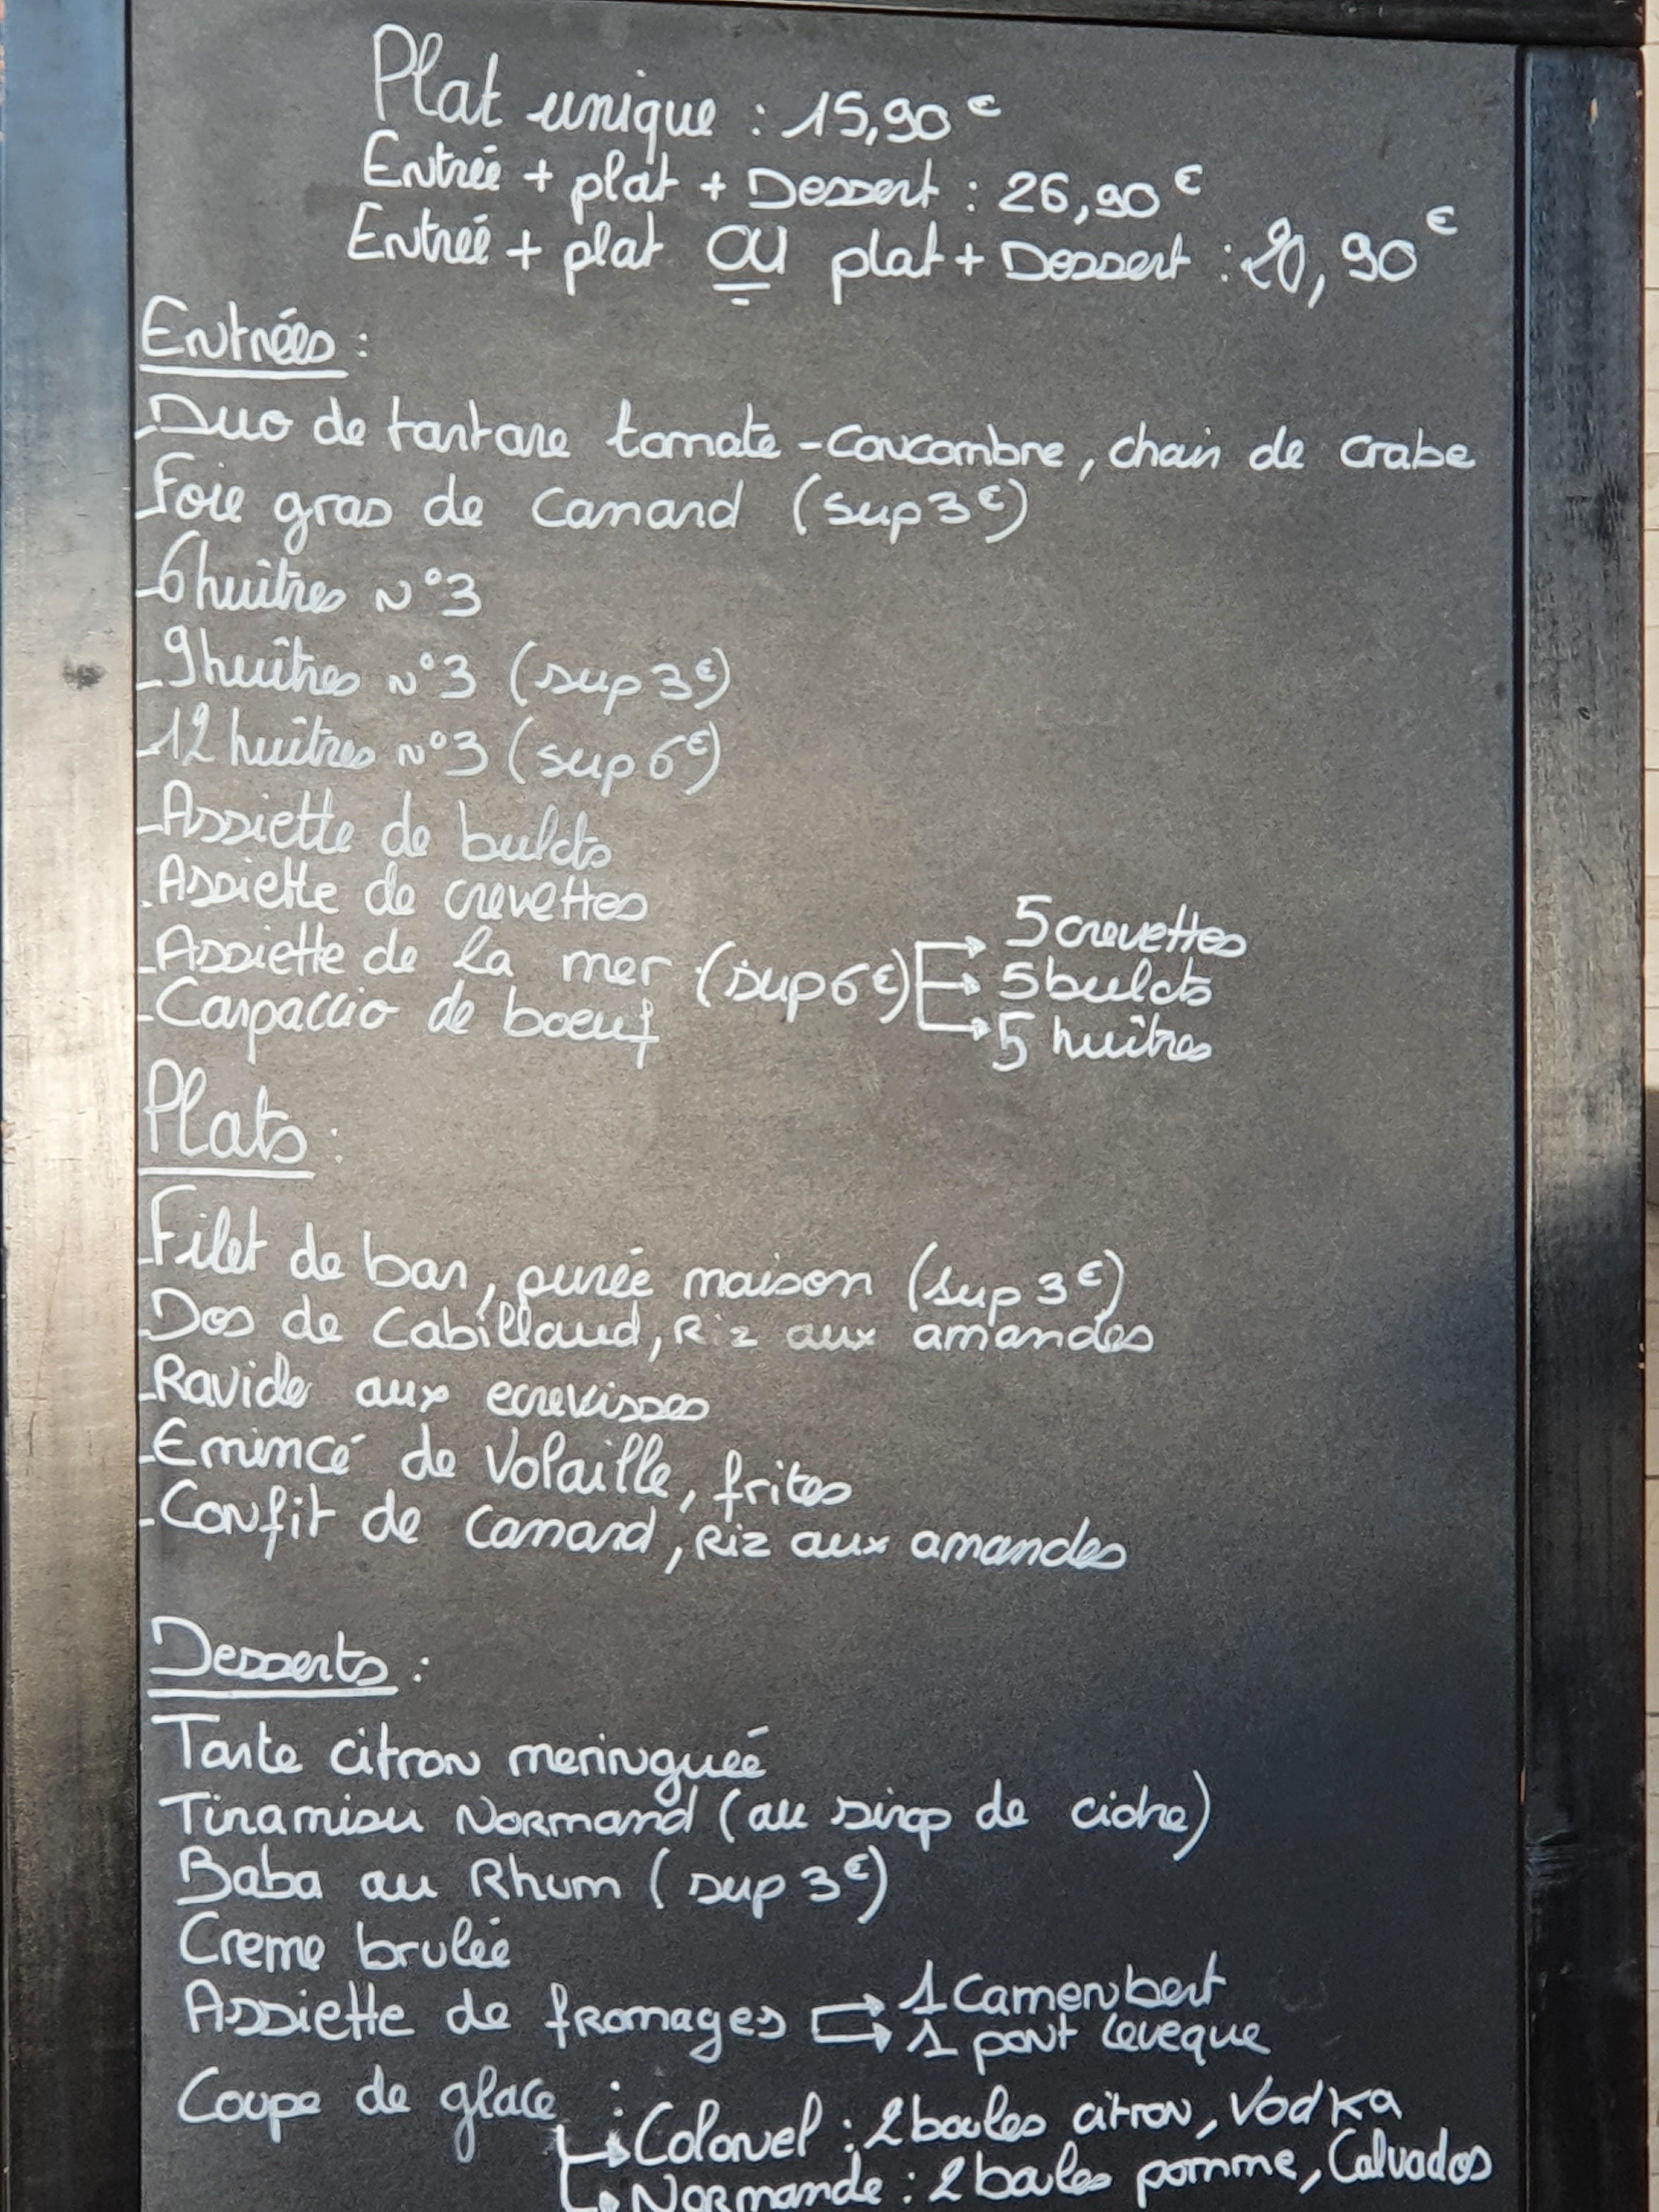 Plat unique : 15,90€
Entrée + plat + Dessert : 26,90€
Entrée + plat OU plat + Dessert : 20,90€
Entrées :
-Duo de tartare tomate-Concombre, chair de crabe
-Foie gras de Canard (sup 3€)
-6 huîtres N°3
-9 huîtres N°3 (sup 3€)
-12 huîtres N°3 (sup 6€)
-Assiette de bulots
-Assiette de crevettes
-Assiette de la mer (sup 6€) → 5 crevettes
→ 5 bulots
→ 5 huîtres
-Carpaccio de boeuf
Plats :
-Filet de bar, purée maison (sup 3€)
-Dos de Cabillaud, Riz aux amandes
-Raviole aux ecrevisses
-Emincé de Volaille, frites
-Confit de Canard, Riz aux amandes
Desserts :
Tarte citron meringuée
Tiramisu Normand (au sirop de cidre)
Baba au Rhum (sup 3€)
Creme brulée
Assiette de fromages → 1 Camembert
→ 1 pont leveque
Coupe de glace :
→ Colonel : 2 boules citron, Vodka
→ Normande : 2 boules pomme, Calvados